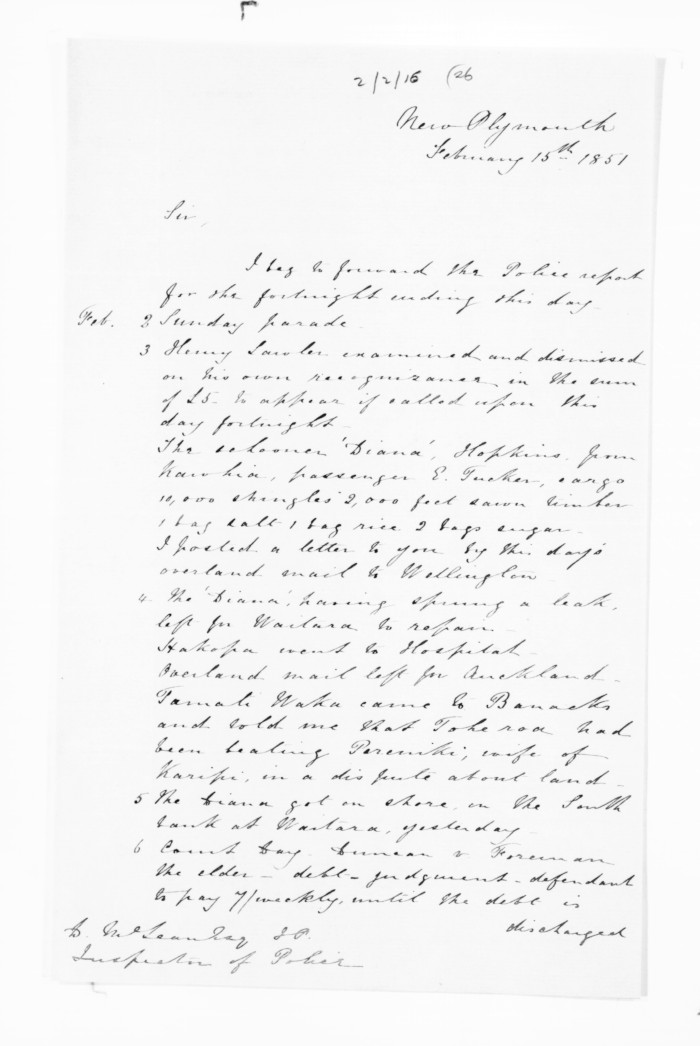 2/2/16 (26
New Plymouth
February 15th 1851
Sir,
I beg to forward the Police report
for the fortnight ending this day.
Feb. 2 Sunday parade.
3 Henry Lawler examined and dismissed
on his own recognizance in the sum
of £5 to appear if called upon this
day fortnight.
The schooner 'Diana', Hopkins, from
Kawhia, passenger E. Tucker, cargo
10,000 shingles 2,000 feet sawn timber
1 bag salt 1 bag rice 2 bags sugar.
I posted a letter to you by this day's
overland mail to Wellington
4 The 'Diana', having sprung a leak,
left for Waitara to repair
Hakopa went to Hospital
Overland mail left for Auckland
Tamati Waka came to Barracks
and told me that Toheroa had
been beating Pereniki, wife of
Karipi, in a dispute about land
5 The Diana got on shore on the South
bank at Waitara, yesterday
6 Court Day. Duncan v Foreman
the elder - debt - judgment - defendant
to pay 7/ weekly, until the debt is
discharged
D. McLean Esq J.P.
Inspector of Police